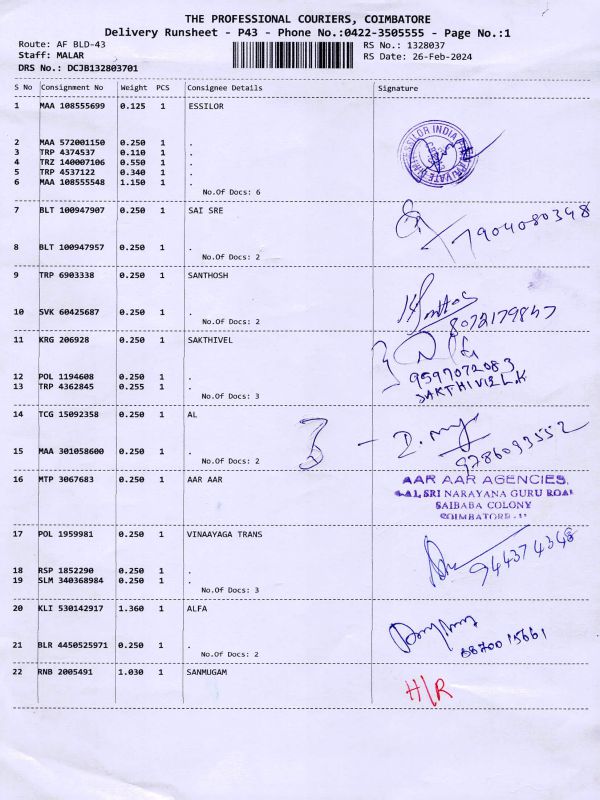 THE PROFESSIONAL COURIERS, COIMBATORE
Delivery Runsheet - P43 - Phone No.:0422-3505555 - Page No.:1
Route: AF BLD-43 RS No.: 1328037
Staff: MALAR RS Date: 26-Feb-2024
DRS No.: DCJB132803701
S No Consignment No Weight PCS Consignee Details Signature
1 MAA 108555699 0.125 1 ESSILOR
2 MAA 572001150 0.250 1 .
3 TRP 4374537 0.110 1 .
4 TRZ 140007106 0.550 1 .
5 TRP 4537122 0.340 1 .
6 MAA 108555548 1.150 1 .
No.Of Docs: 6
ESSILOR INDIA PRIVATE
7 BLT 100947907 0.250 1 SAI SRE
7904080348
8 BLT 100947957 0.250 1 .
No.Of Docs: 2
9 TRP 6903338 0.250 1 SANTHOSH
10 SVK 60425687 0.250 1 .
8072179847
No.Of Docs: 2
11 KRG 206928 0.250 1 SAKTHIVEL
3
12 POL 1194608 0.250 1 .
9597072083
13 TRP 4362845 0.255 1 .
SAKTHIVEL.K
No.Of Docs: 3
14 TCG 15092358 0.250 1 AL
3 -
15 MAA 301058600 0.250 1 .
9786093552
No.Of Docs: 2
16 MTP 3067683 0.250 1 AAR AAR
AAR AAR AGENCIES,
SRI NARAYANA GURU ROAD
SAIBABA COLONY
COIMBATORE-11
17 POL 1959981 0.250 1 VINAAYAGA TRANS
18 RSP 1852290 0.250 1 .
944374348
19 SLM 340368984 0.250 1 .
No.Of Docs: 3
20 KLI 530142917 1.360 1 ALFA
21 BLR 4450525971 0.250 1 .
No.Of Docs: 2
22 RNB 2005491 1.030 1 SANMUGAM
H/R